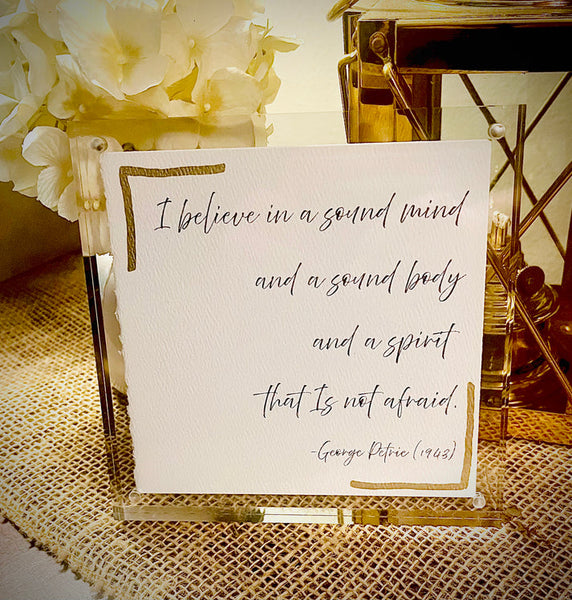 I believe in a sound mind
and a sound body
and a spirit
that Is not afraid.
-George Petrie (1943)